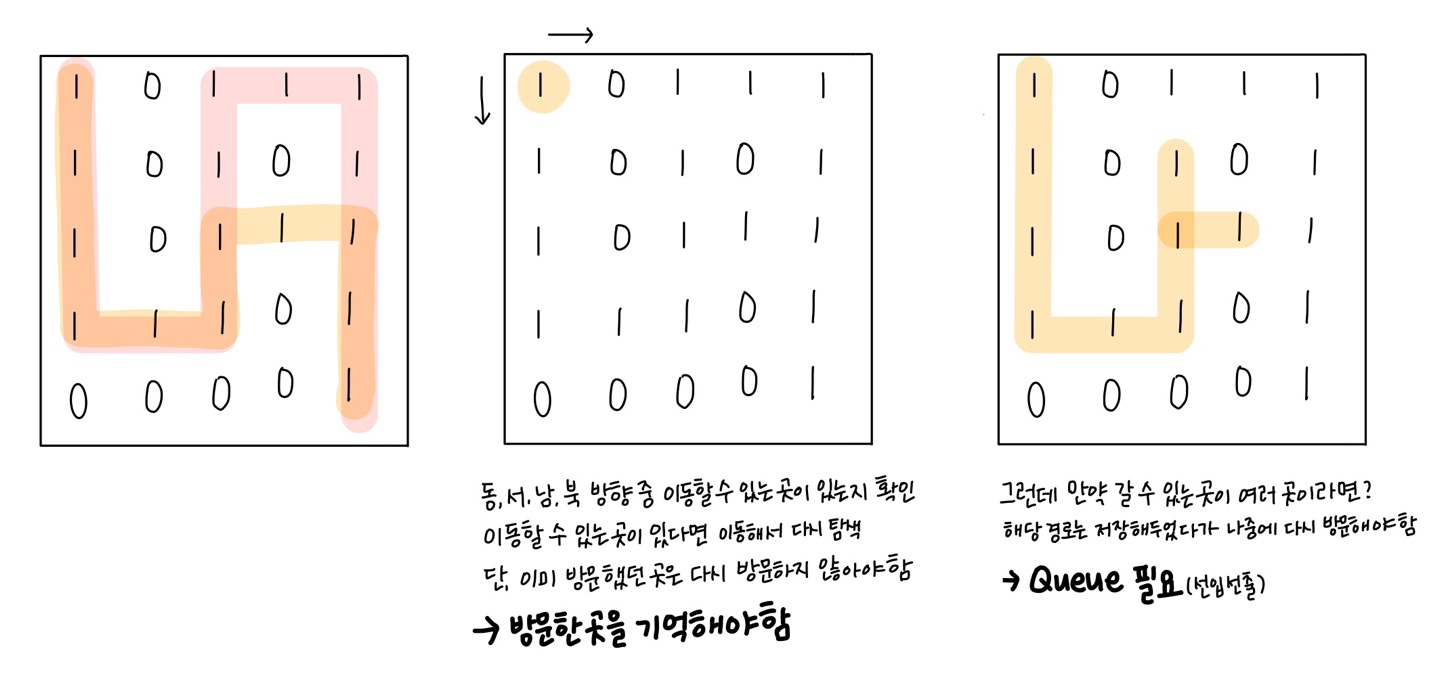 1 0 1 1 1
1 0 1 0 1
1 0 1 1 1
1 1 1 0 1
0 0 0 0 1
→
↓
1 0 1 1 1
1 0 1 0 1
1 0 1 1 1
1 1 1 0 1
0 0 0 0 1
동, 서, 남, 북 방향 중 이동할 수 있는 곳이 있는지 확인
이동할 수 있는 곳이 있다면 이동해서 다시 탐색
단, 이미 방문했던 곳은 다시 방문하지 않아야 함
→ 방문한 곳을 기억해야 함
1 0 1 1 1
1 0 1 0 1
1 0 1 1 1
1 1 1 0 1
0 0 0 0 1
그런데 만약 갈 수 있는 곳이 여러 곳이라면?
해당 경로는 저장해두었다가 나중에 다시 방문해야 함
→ Queue 필요 (선입선출)